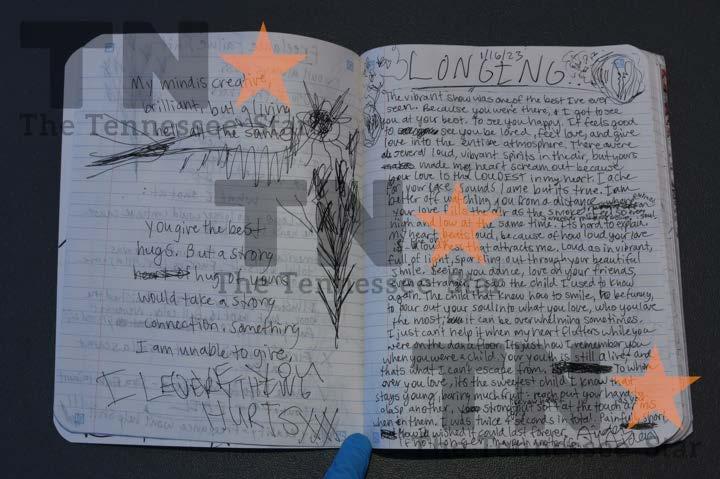 My mind is creative,
brilliant, but a living
hell at the same
You give the best
hugs. But a strong
hug of yours
would take a strong
connection. Something
I am unable to give,
EVERYTHING
HURTS XXX
1/16/23
LONGING
The vibrant show was one of the best I've ever
seen. Because you were there, & I got to see
you at your best. To see you happy. It feels good
to see you be loved, feel love, and give
love into the entire atmosphere. There were
several loud, vibrant spirits in the air, but yours
made my heart scream out because
your love is the LOUDEST in my heart. I ache
for your face. Sounds lame but its true. I am
better off watching you from a distance
your love fills the air as the smoke
high and low at the same time. It's hard to explain.
heart beats loud, because of how loud your love
that attracts me. Loud as in vibrant,
full of light, sparking out through your beautiful
smile. Seeing you dance, love on your friends,
even as strangers, is also the child I used to know
again. The child that knew how to smile, be funny,
to pour out your soul into what you love, who you love
the most, it can be overwhelming sometimes.
I just can't help it when my heart flutters while you
were on the dance floor. Its just how I remember you
when you were a child. your youth is still alive, and
thats what I can't escape from. To whom
ever you love, its the sweetest child I know that
stays young, caring much for it. reach out your hand to
clasp another, strong but soft at the touch of
when on them. I was twice 4 seconds in total. Painfully short.
How I wished it could last forever.
If not together, maybe in another
TN
The Tennessee Star
TN
The Tennessee Star
TN
The Tennessee Star